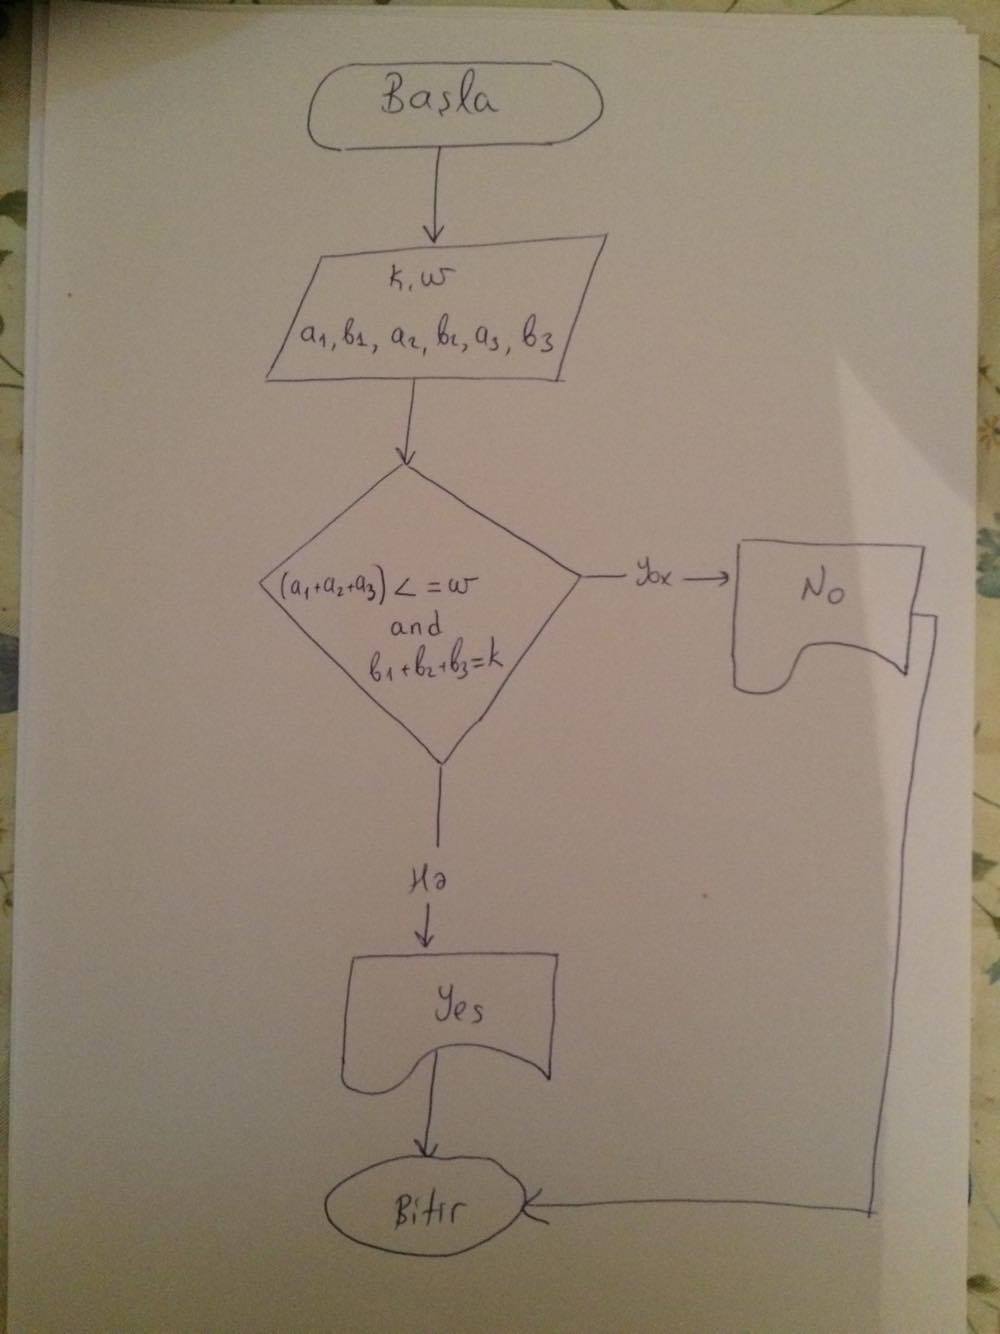 Başla
k, w
a1, b1, a2, b2, a3, b3
(a1+a2+a3) < = w
and
b1+b2+b3=k
Yox
No
Hə
Yes
Bitir